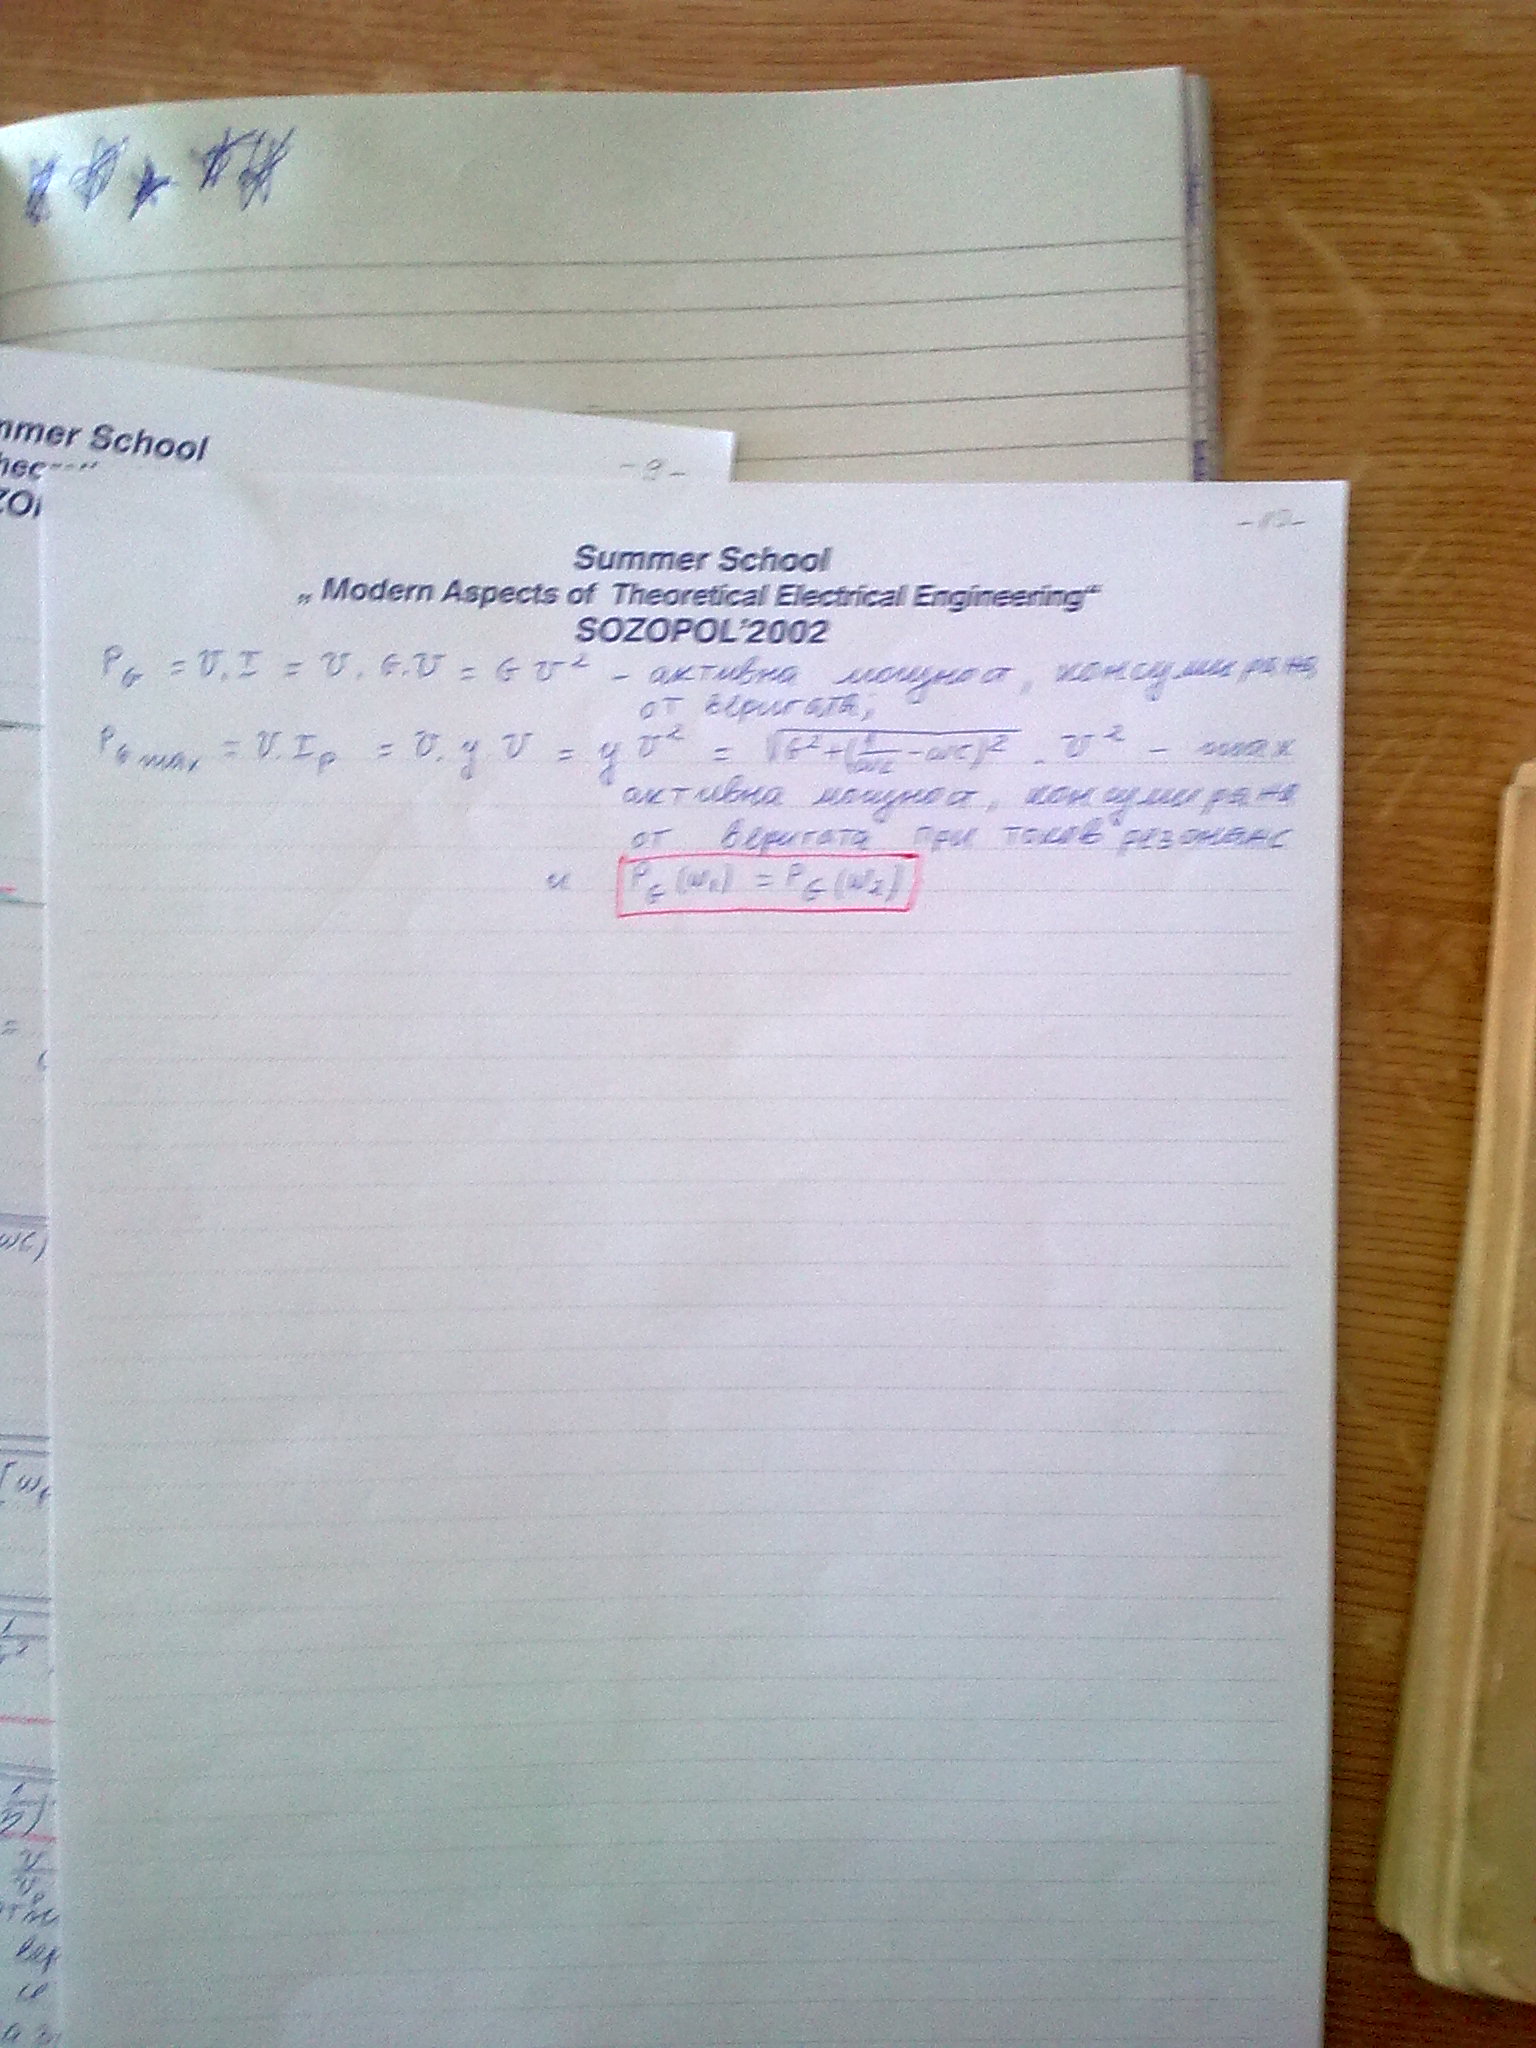 mmer School
- 9 -
Summer School
„ Modern Aspects of Theoretical Electrical Engineering“
SOZOPOL’2002
P_G = U.I = U.G.U = G U² – активна мощност, консумирана
от веригата;
P_G max = U.I_P = U.yU = yU² = √(G²+(1/ωL – ωC)²) . U² – max
активна мощност, консумирана
от веригата при токов резонанс
и P_G(ω₁) = P_G(ω₂)